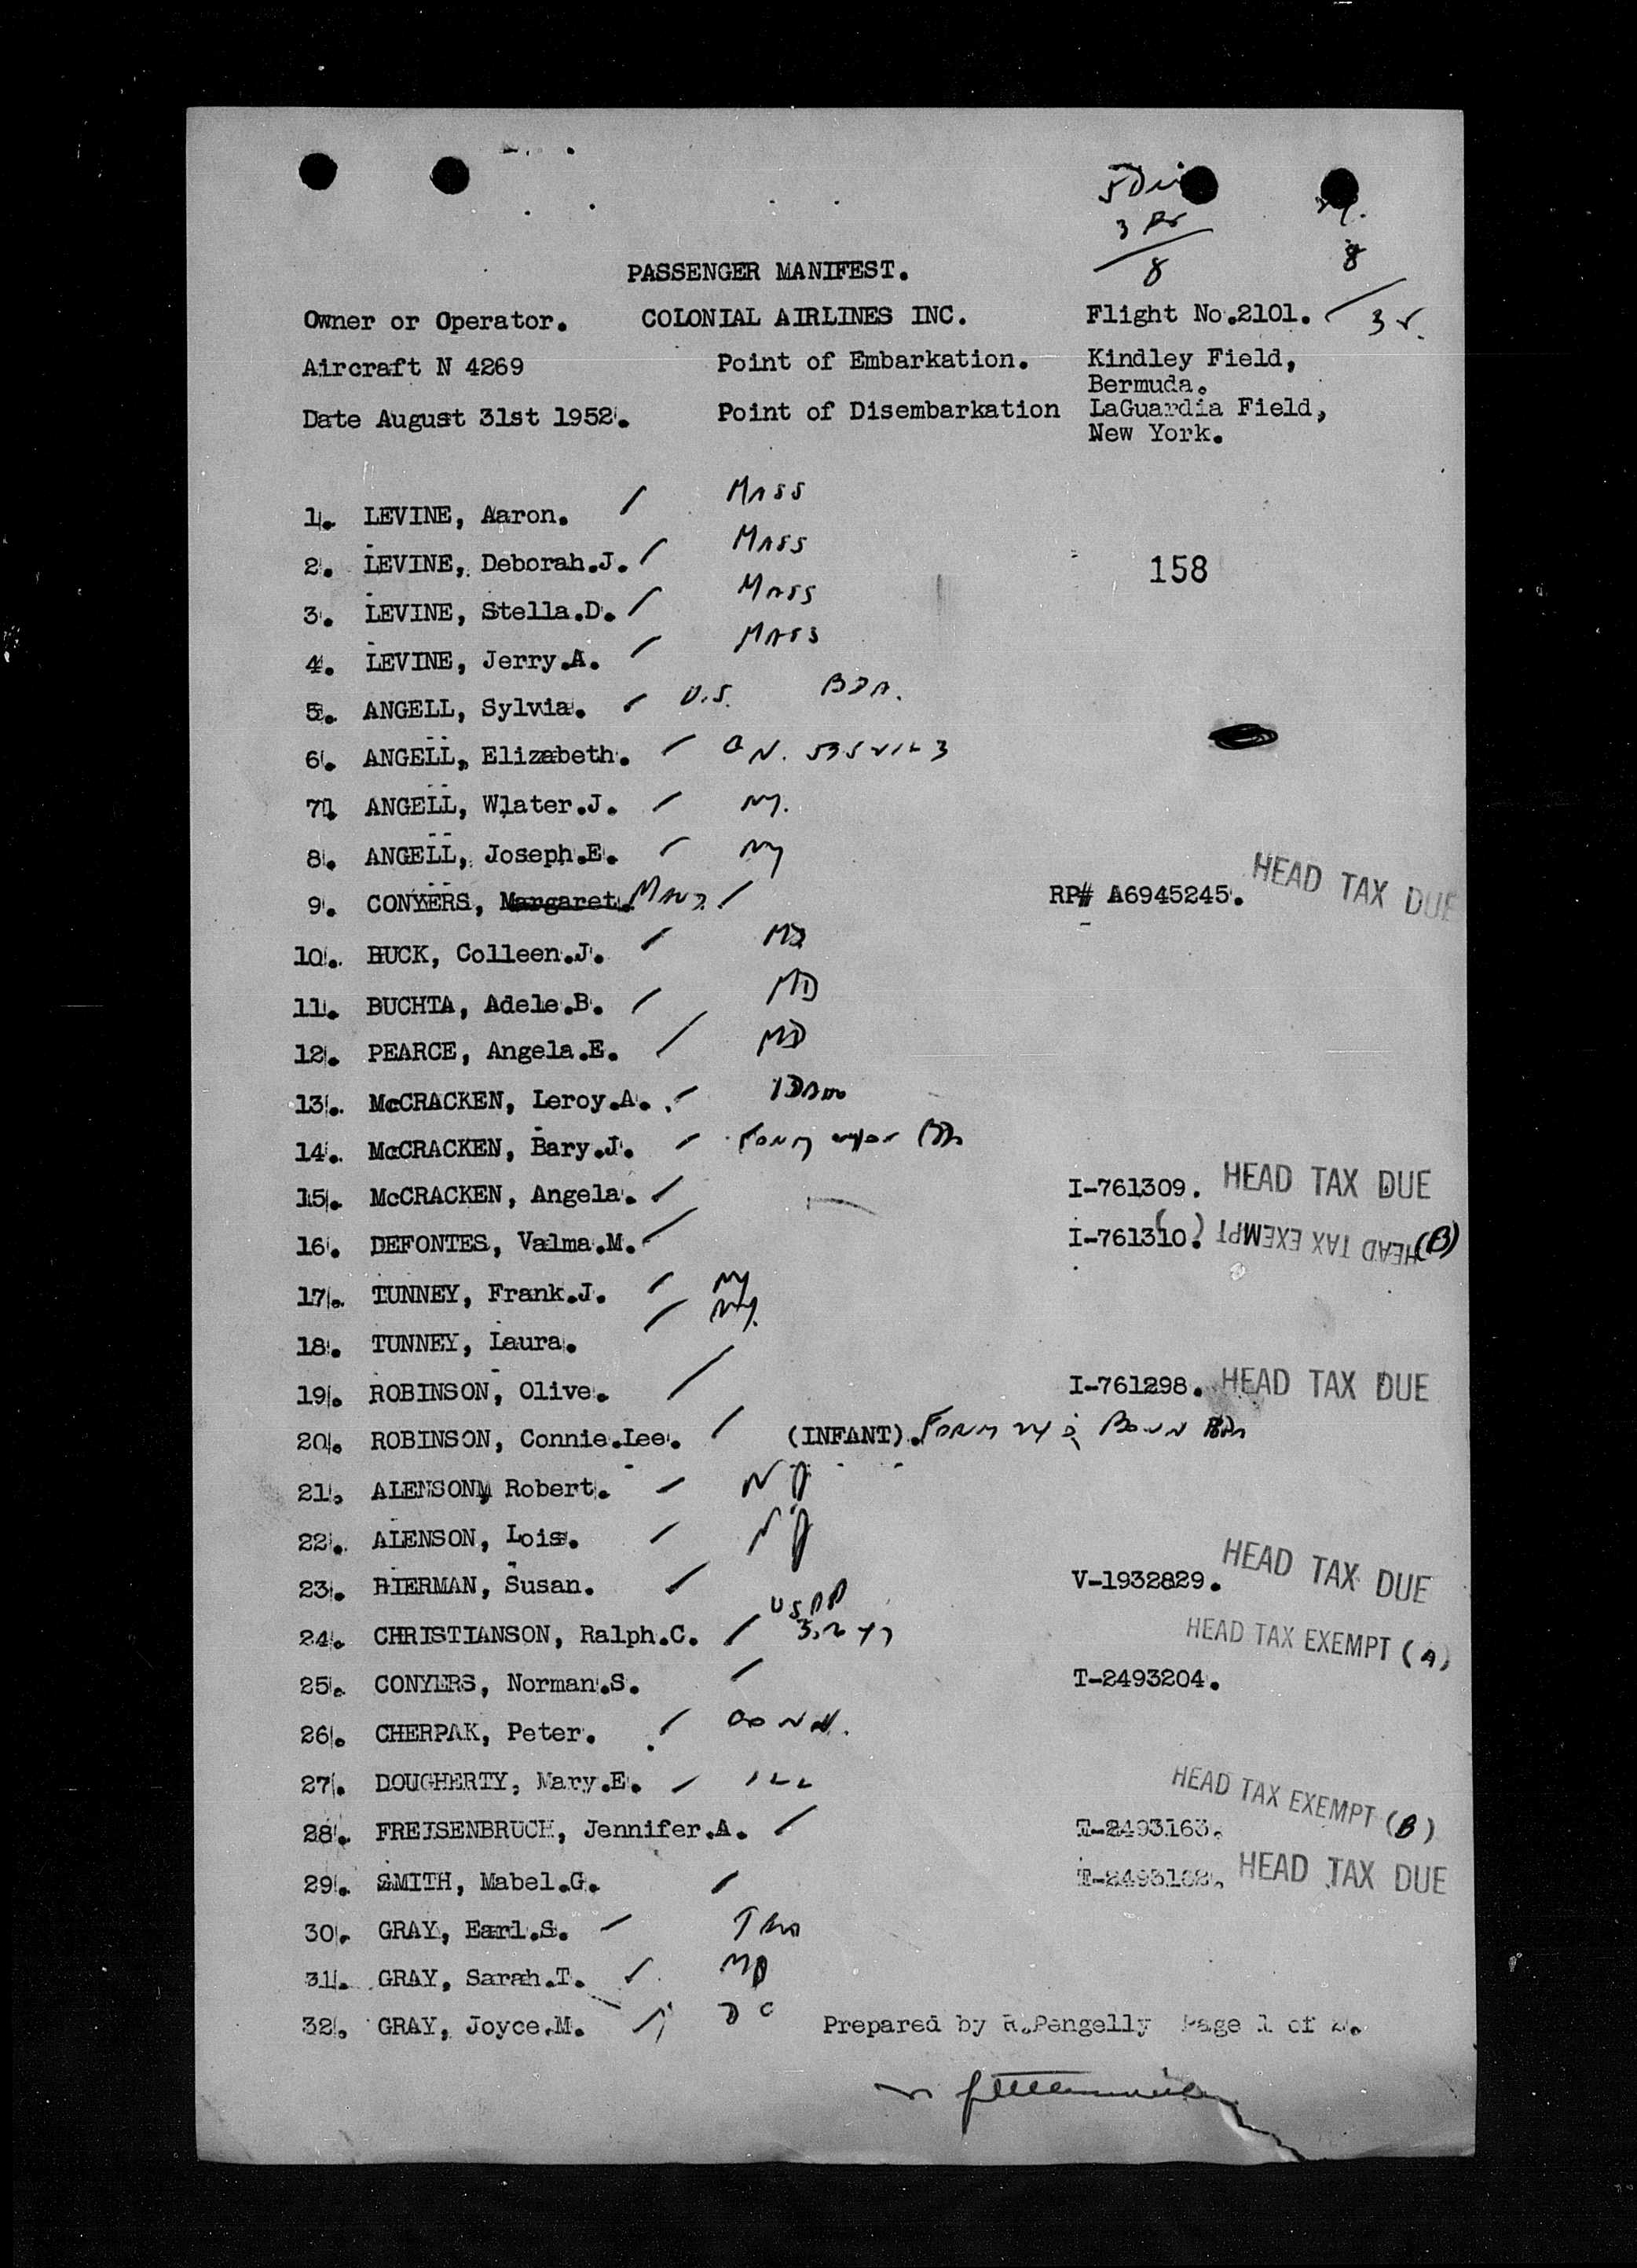 3
8
8
PASSENGER MANIFEST.
Owner or Operator. COLONIAL AIRLINES INC. Flight No.2101. 35.
Aircraft N 4269 Point of Embarkation. Kindley Field,
Bermuda.
Date August 31st 1952. Point of Disembarkation LaGuardia Field,
New York.
1. LEVINE, Aaron. / MASS
2. LEVINE, Deborah.J. / MASS
158
3. LEVINE, Stella.D. / MASS
4. LEVINE, Jerry.A. / MASS
5. ANGELL, Sylvia. / U.S. BDA.
6. ANGELL, Elizabeth. /
7. ANGELL, Wlater.J. / NY.
8. ANGELL, Joseph.E. / NY
9. CONYERS, Margaret. / RP# A6945245. HEAD TAX DUE
10. BUCK, Colleen.J. / MD
11. BUCHTA, Adele.B. / MD
12. PEARCE, Angela.E. / MD
13. McCRACKEN, Leroy.A. /
14. McCRACKEN, Bary.J. /
15. McCRACKEN, Angela. / I-761309. HEAD TAX DUE
16. DEFONTES, Valma.M. / I-761310. HEAD TAX EXEMPT (B)
17. TUNNEY, Frank.J. / NY
18. TUNNEY, Laura. / NY.
19. ROBINSON, Olive. / I-761298. HEAD TAX DUE
20. ROBINSON, Connie.Lee. / (INFANT). FORM BORN
21. ALENSON, Robert. / NJ
22. ALENSON, Lois. / NJ
23. BIERMAN, Susan. / V-1932829. HEAD TAX DUE
24. CHRISTIANSON, Ralph.C. / USPP HEAD TAX EXEMPT (A)
25. CONYERS, Norman.S. / T-2493204.
26. CHERPAK, Peter. / CONN.
27. DOUGHERTY, Mary.E. / ILL
28. FREISENBRUCH, Jennifer.A. / T-2493163. HEAD TAX EXEMPT (B)
29. SMITH, Mabel.G. / T-2493162. HEAD TAX DUE
30. GRAY, Earl.S. /
31. GRAY, Sarah.T. / MD
32. GRAY, Joyce.M. / DC Prepared by R.Pengelly Page 1 of 2.